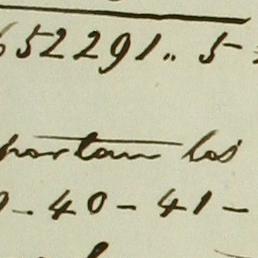 652291.. 5
portan los
- 40 - 41 -